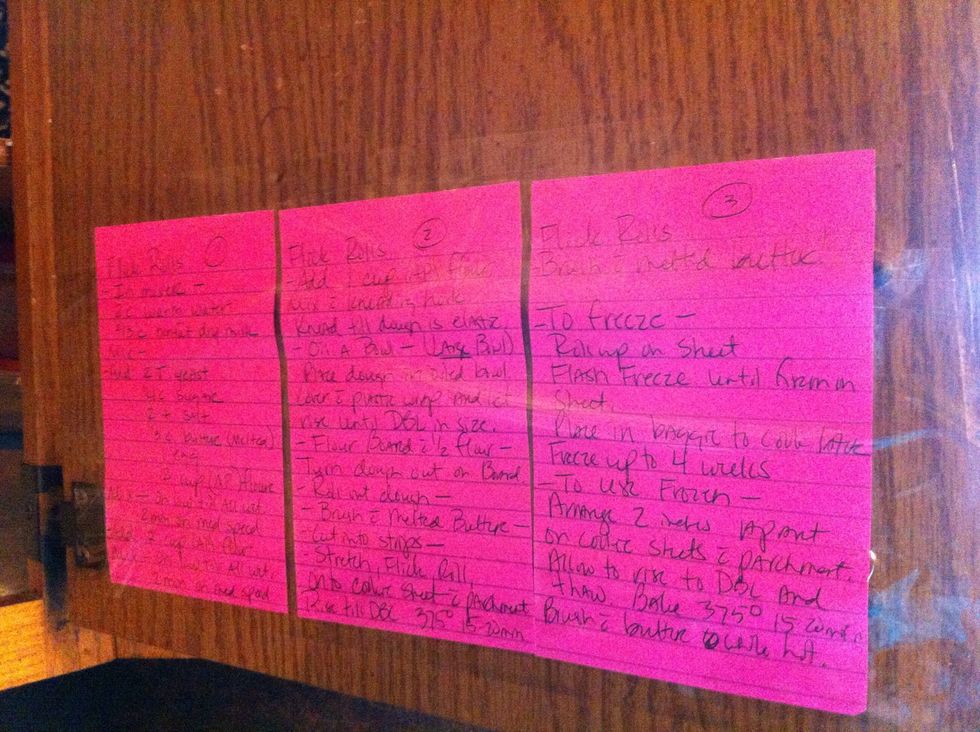 Flick Rolls 1
- In mixer -
2 c warm water
2/3 c instant dry milk
Mix -
- Add 2 T yeast
1/4 c sugar
2 t salt
1/3 c butter (melted)
1 egg
cup (AP) flour
Mix - on low till All wet.
2 min on med speed
- Add 2 cup (AP) flour
Mix - on low till All wet.
2 min on med speed
Flick Rolls 2
- Add 1 cup (AP) flour
mix c̄ kneading hook
Knead till dough is elastic
- Oil A Bowl - (Large Bowl)
Place dough in oiled bowl
cover c̄ plastic wrap And let
rise until DBL in size.
- Flour Board c̄ 1/2 flour -
Turn dough out on Board
- Roll out dough -
- Brush c̄ Melted Butter -
- Cut into strips -
- Stretch, Flick Roll,
onto cookie sheet c̄ parchment
Rise till DBL 375° 15-20 min
3
Flick Rolls
- Brush c̄ melted butter.
- To freeze -
Roll up on sheet
Flash Freeze until firm on
sheet.
Place in baggie to cook later
Freeze up to 4 weeks
- To use Frozen -
Arrange 2 inches Apart
on cookie sheets c̄ parchment.
Allow to rise to DBL And
thaw. Bake 375° 15-20 min.
Brush c̄ butter while hot.